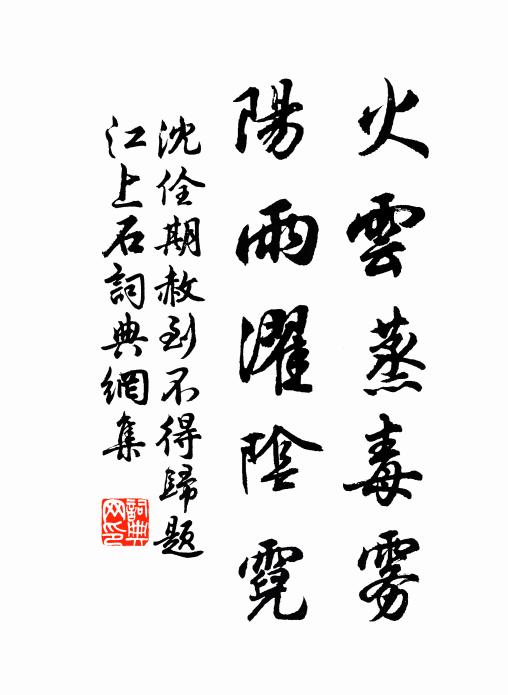 火雲蒸毒雾
陽雨濯陰霓
沈佺期赦到不得歸题
江上石詞典網集
詞典网印